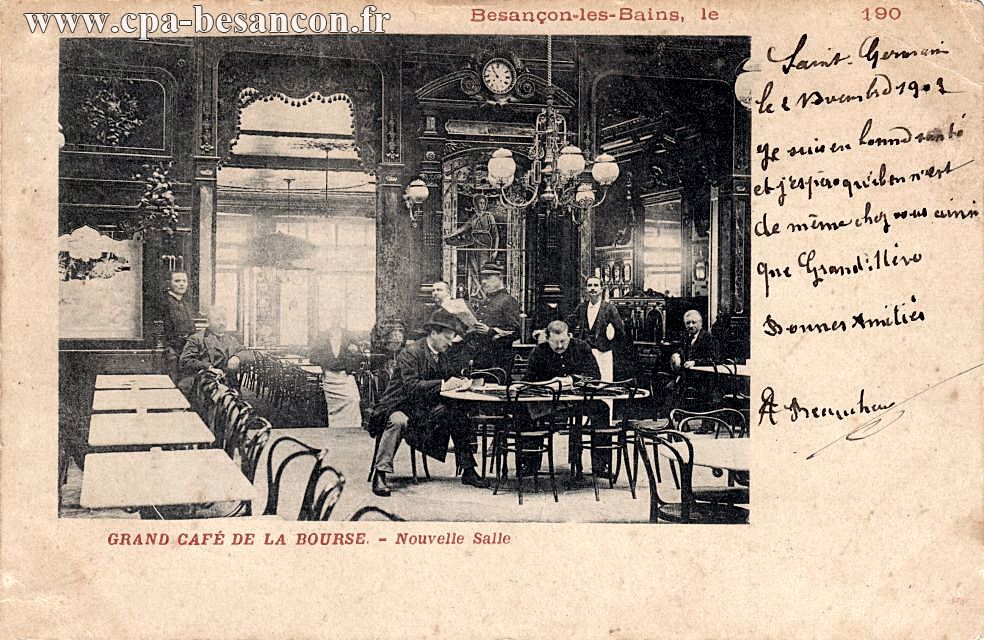 www.cpa-besancon.fr
Besançon-les-Bains, le 190
Saint-Germain
le 2 Novembre 1902
Je suis en bonne santé
et j'espère qu'il en n'est
de même chez vous ainsi
que Grand Mère
Bonnes Amitiés
GRAND CAFÉ DE LA BOURSE. - Nouvelle Salle